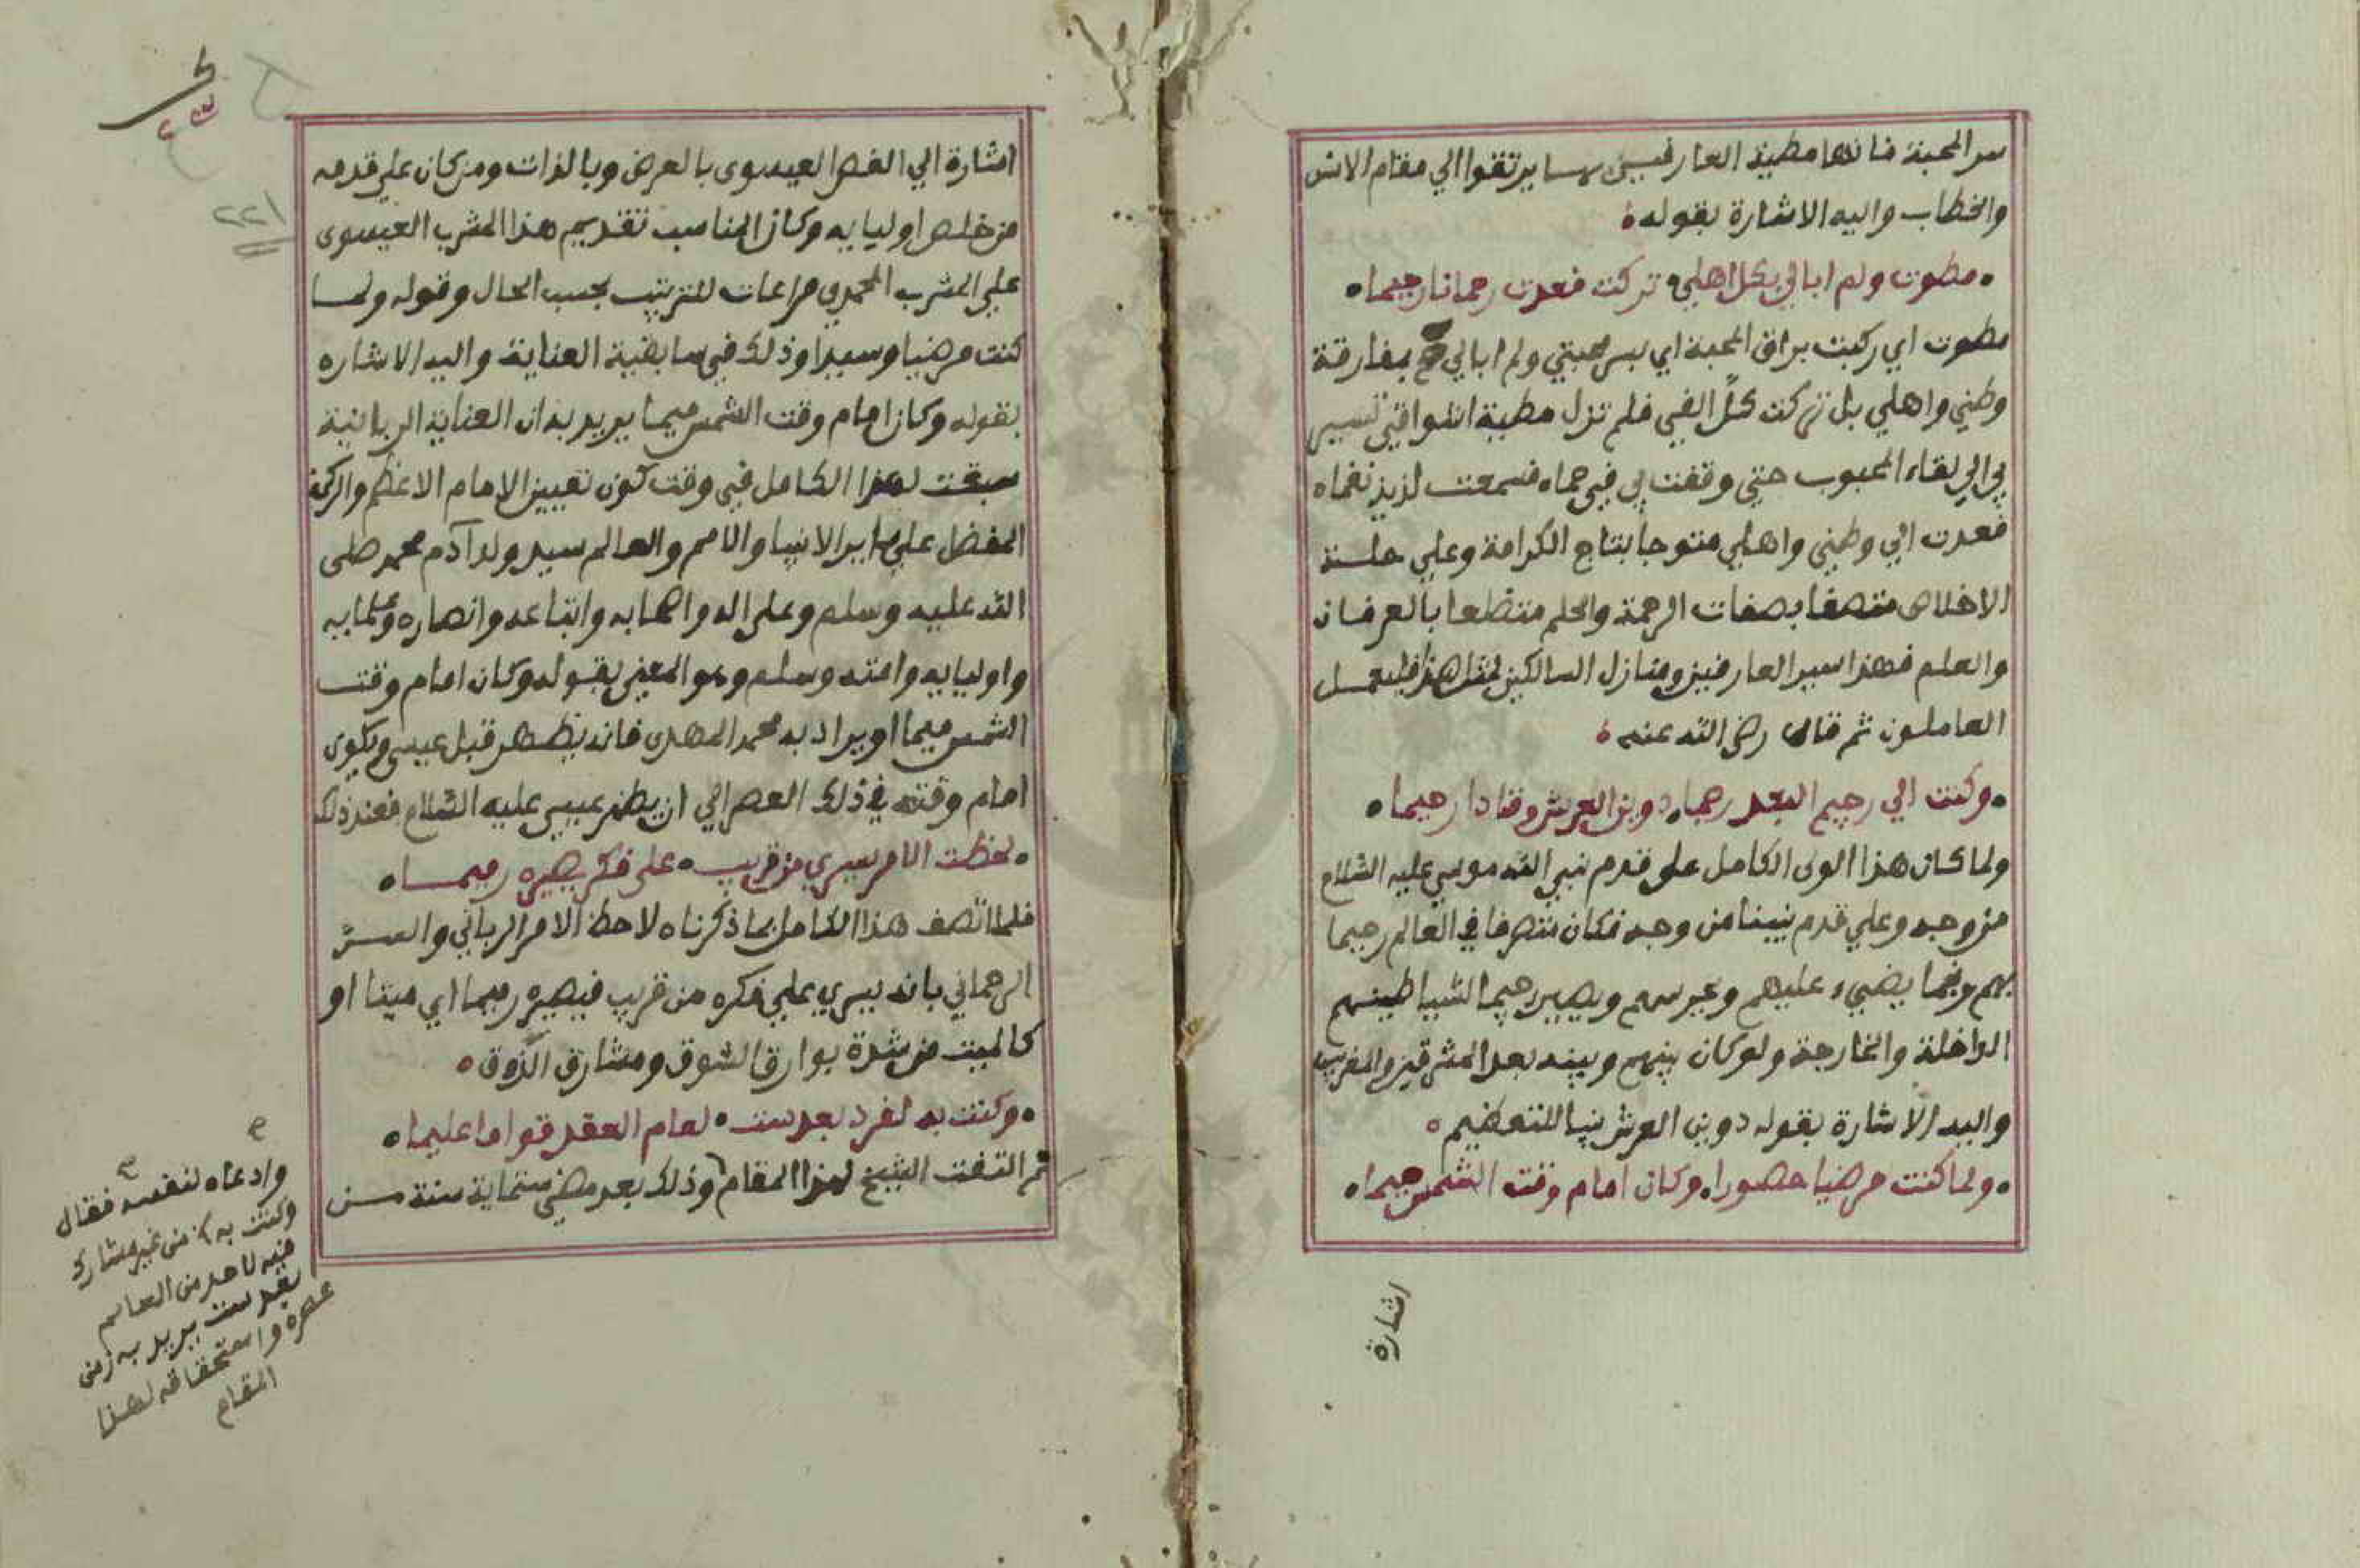 سر المحبة فانها مطية العارفين بها يرتقوا الي مقام الانس
والخطاب واليه الاشارة بقوله
مطوت ولم ابالي بكل اهلي تركت فعدت رحمانا رحيما
مطوت اي ركبت براق المحبة اي بسر محبتي ولم ابالي بمفارقة
وطني واهلي بل تركت كل الفي فلم تزل مطية اشواقي تسير
بي الي لقاء المحبوب حتي وقفت بي في حماه فسمعت لذيذ نغماه
فعدت الي وطني واهلي متوجا بتاج الكرامة وعلي حلة
الاخلاص متصفا بصفات الرحمة والحلم متضلعا بالعرفان
والعلم فهذا سير العارفين ومنازل السالكين لمثل هذا فليعمل
العاملون ثم قال رضي الله عنه
وكنت الي رجيم البعد رجما دوين العرش وقادا رحيما
ولما كان هذا الولي الكامل علي قدم نبي الله موسي عليه السلام
من وجه وعلي قدم نبينا من وجه فكان متصرفا في العالم رحيما
بهم ونجما يضيء عليهم وعبرسهم ويصير رجيما لشياطينهم
الداخلة والخارجة ولو كان بينهم وبينه بعد المشرقين والمغربين
واليه الاشارة بقوله دوين العرش بينا للتعظيم
ولما كنت مرضيا حصورا وكان امام وقت الشمس ميما
اشارة
اشارة الي الفص العيسوى بالعرض وبالذات ومن كان علي قدمه
من خلص اوليايه وكان المناسب تقديم هذا المشرب العيسوى
علي المشرب المحمدي مراعات للترتيب بحسب الحال وقوله ولما
كنت مرضيا وسيدا وذلك في سابقية العناية واليه الاشاره
بقوله وكان امام وقت الشمس ميما يريد به ان العناية الربانية
سبقت لهذا الكامل في وقت كون تعيين الامام الاعظم والركن
المفضل علي ساير الانبيا والامم والعالم سيد ولد آدم محمد صلى
الله عليه وسلم وعلى اله واصحابه واتباعه وانصاره وعلمايه
واوليايه وامته وسلم وهو المعني بقوله وكان امام وقت
الشمس ميما او يراد به محمد المهدى فانه يظهر قبل عيسى ويكون
امام وقته في ذلك العصر الي ان يظهر عيسى عليه السلام فعند ذلك
لحظت الامر يسري من قريب على فكر يصيره رميما
فلما اتصف هذا الكامل بما ذكرناه لاحظ الامر الرباني والسر
الرحماني بانه يسري علي فكره من قريب فيصيره رميما اي ميتا او
كالميت من شدة بوارق الشوق ومشارق الذوق
وكنت به لفرد بعد ست لعام العقد قواما عليما
ثم التفت الشيخ لهذا المقام وذلك بعد مضي ستماية سنة من
وادعاه لنفسه فقال
وكنت به من غير مشارك
فيه لاحد من العالم
بعد ست يريد به زمن
عصره واستحقاقه لهذا
المقام
٢٢١